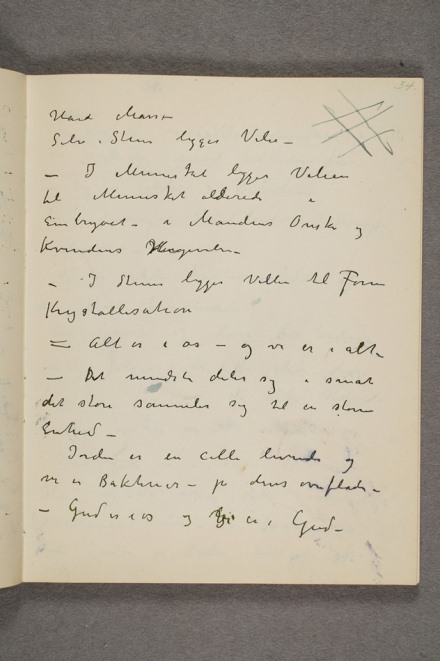 34
Haard Masse
Selv i Stenen ligger Vilie –
– I Mennesket ligger Vilien
til Mennesket allerede i
Embryoet – i Mandens Ønske og
Kvindens
– I Stenen ligger Villien til Form
Krystallisation
= Alt er i os – og vi er i alt –
– Det mindste deler sig i smaat
det store sammeler sig til en større
Enhed –
Jorden er en celle levende og
vi er Bakterier – på dens overflade –
– Gud er i os og vi er i Gud –